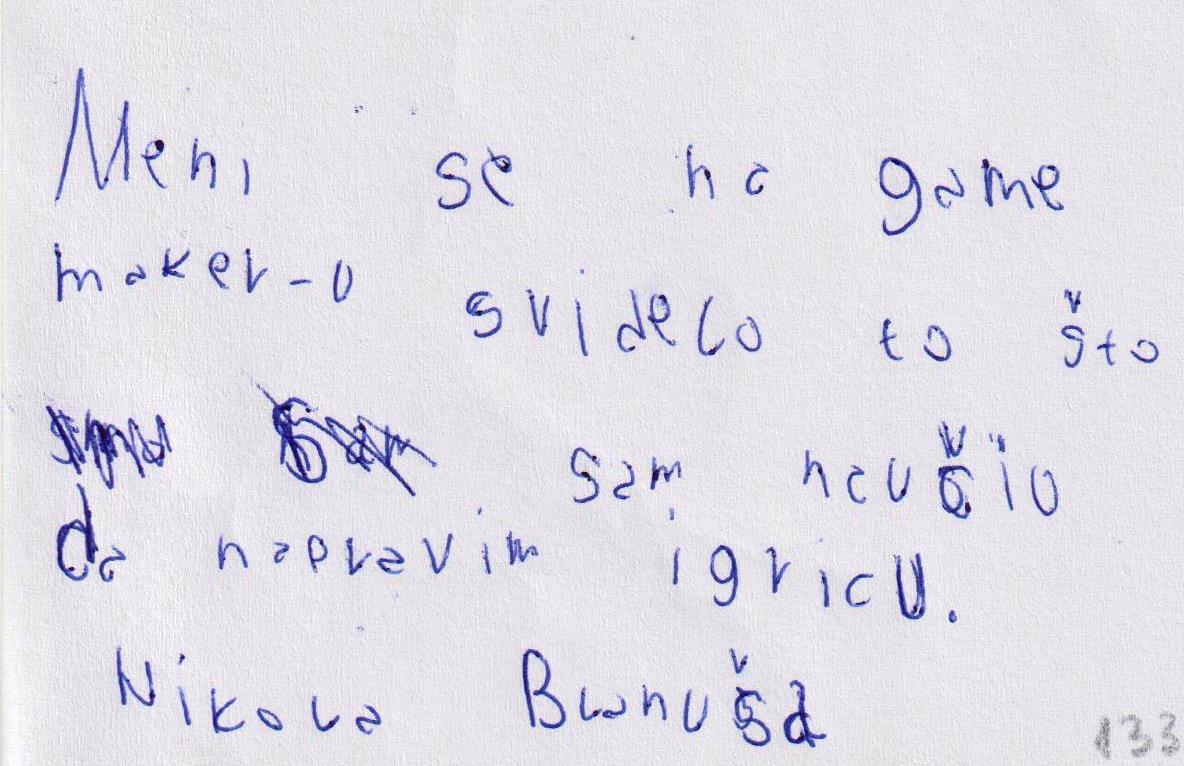 Meni se na game
maker-u svidelo to što
sam naučio
da napravim igricu.
Nikola Blanuša
133